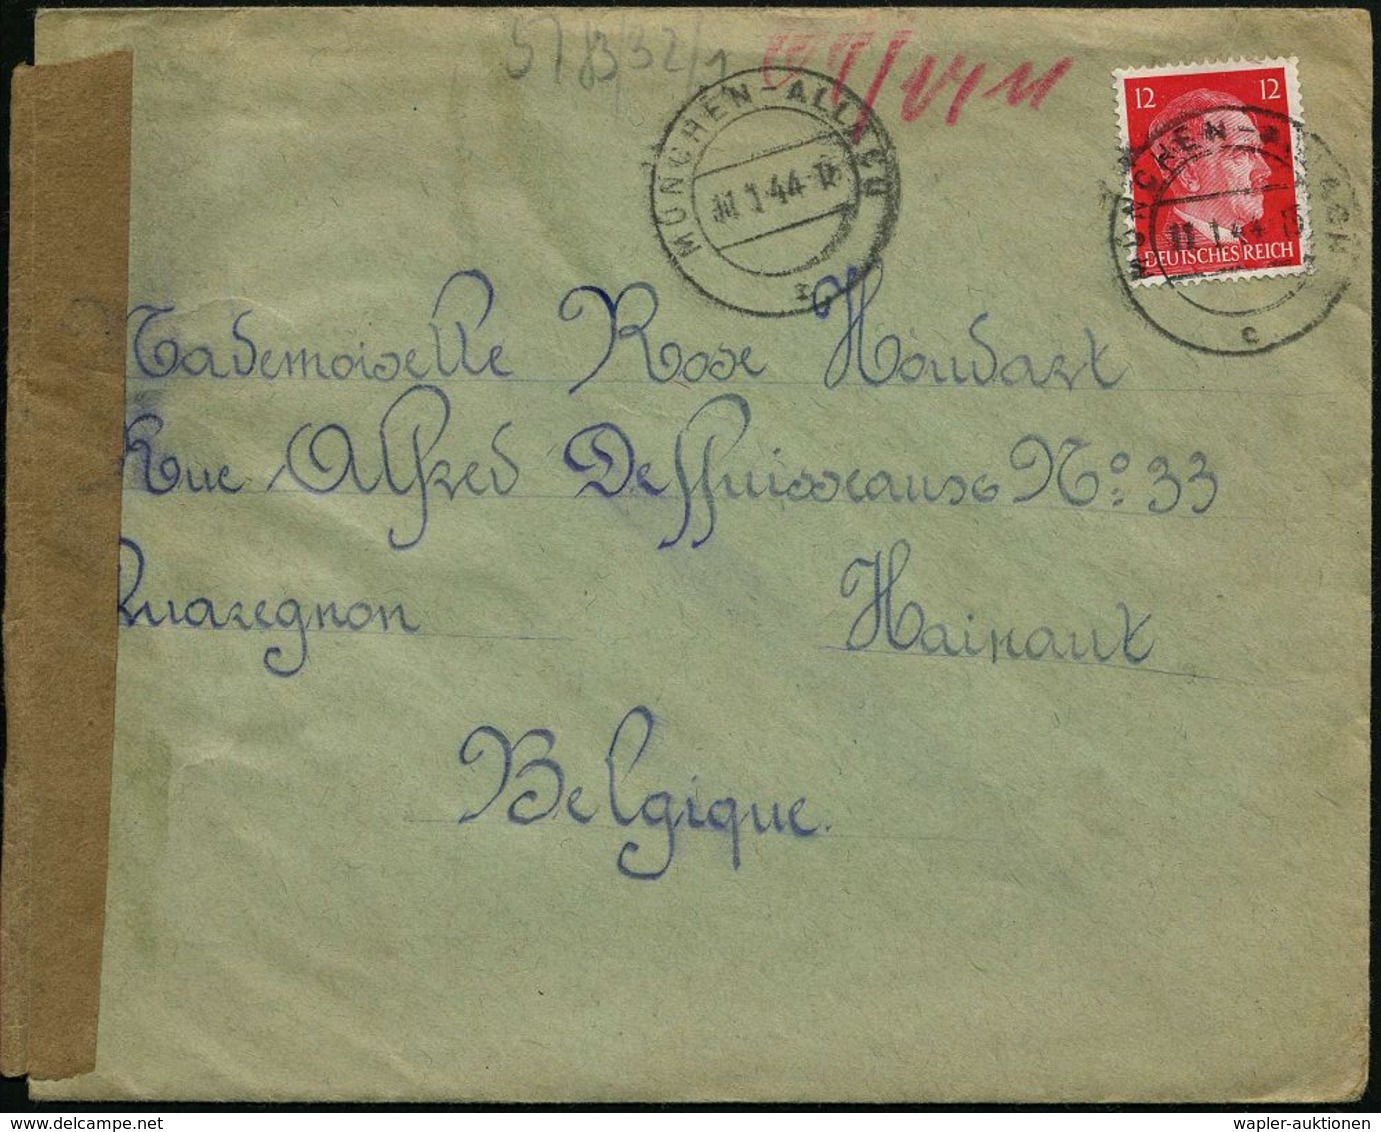 57/3/32/1
MÜNCHEN-ALLACH
11.1.44
c
12 12
DEUTSCHES REICH
MÜNCHEN-ALLACH
11.1.44
c
Mademoiselle Rose Houdart
Rue Alfred Deffuisseaux No: 33
Quaregnon Hainaut
Belgique.
wapler-auktionen